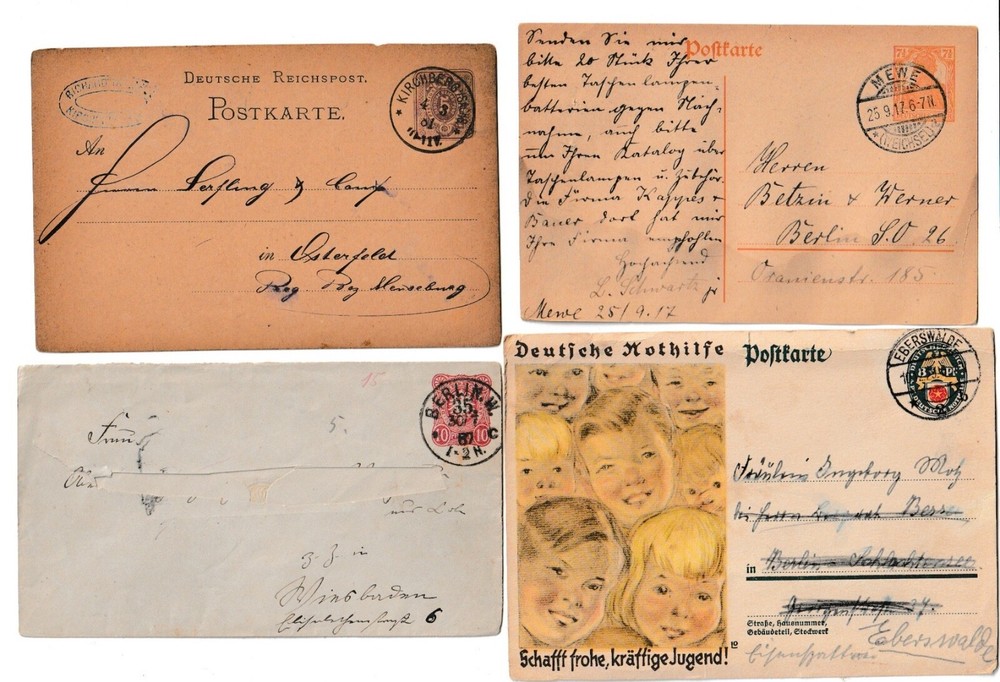 DEUTSCHE REICHSPOST.
POSTKARTE.
KIRCHBERG
An
Herrn Serfling & Comp
in Osterfeld
Reg Bez Merseburg
Senden Sie mir
bitte 20 Stück Ihrer
besten Taschenlampen
batterien gegen Nach-
nahme, auch bitte
um Ihren Katalog über
Taschenlampen u. Zubehör.
Die Firma Kappes &
Bauer dort hat mir
Ihre Firma empfohlen
Hochachtend
L. Schwartz jr
Mewe 25/9.17
Postkarte
7½ 7½
MEWE
25.9.17.6-7N.
* (WEICHSEL) *
Herren
Betzin & Werner
Berlin S.O. 26
Oranienstr. 185.
15
BERLIN, W.
35
30/7
87
1-2N.
C
10 10
Frau
5.
z. Z. in
Wiesbaden
6
Deutsche Nothilfe
Schafft frohe, kräftige Jugend!
10
Postkarte
EBERSWALDE
Fräulein Ingeborg
bei Herrn
in Berlin - Schlachtensee
Straße, Hausnummer,
Gebäudeteil, Stockwerk
Eberswalde